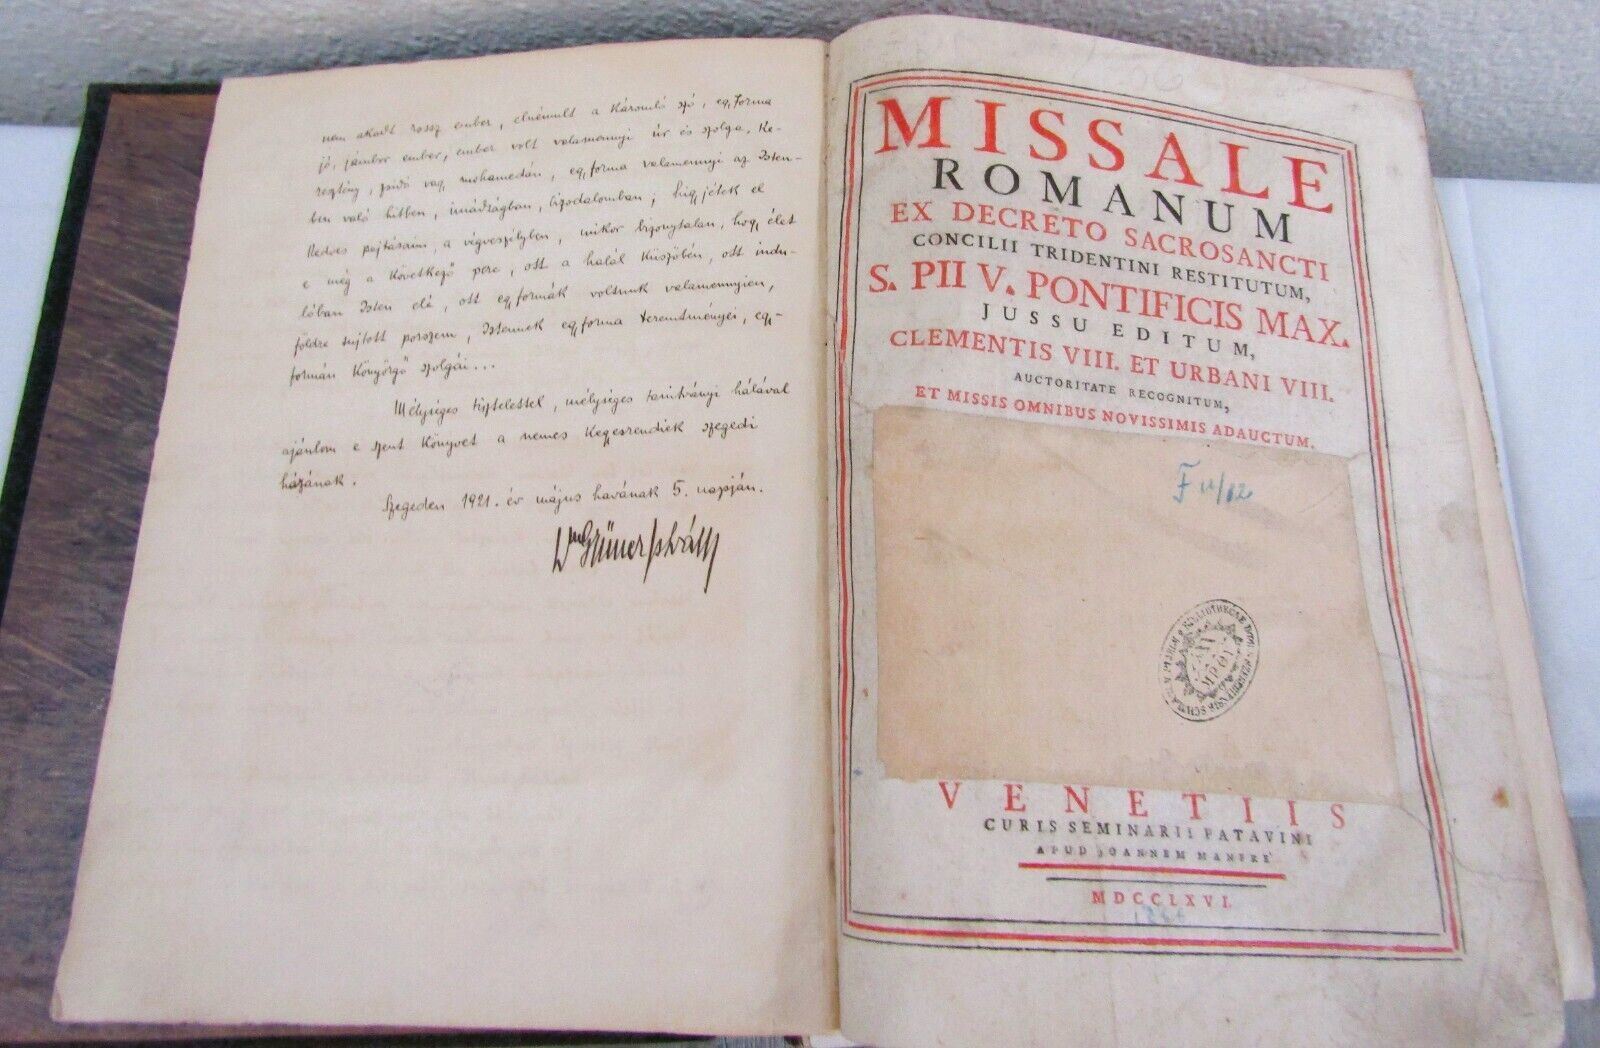 nem akadt rossz ember, elnémult a káromló szó, egyforma
jó, jámbor ember, ember volt valamennyi úr és szolga. Ke-
resztény, zsidó vagy mohamedán, egyforma valamennyi az Isten-
ben való hitben, imádságban, bizodalomban; higyjétek el
kedves pajtásaim, a végveszélyben, mikor bizonytalan, hogy élet
e még a következő perc, ott a halál küszöbén, ott indu-
lóban Isten elé, ott egyformák voltunk valamennyien,
földre sujtott porszem, Istennek egyforma teremtményei, egy-
formán könyörgő szolgái...
Mélységes tisztelettel, mélységes tanítványi hálával
ajánlom e szent könyvet a nemes Kegyesrendiek szegedi
házának.
Szegeden 1921. év május havának 5. napján.
MISSALE
ROMANUM
EX DECRETO SACROSANCTI
CONCILII TRIDENTINI RESTITUTUM,
S. PII V. PONTIFICIS MAX.
JUSSU EDITUM,
CLEMENTIS VIII. ET URBANI VIII.
AUCTORITATE RECOGNITUM,
ET MISSIS OMNIBUS NOVISSIMIS ADAUCTUM.
VENETIIS
CURIS SEMINARII PATAVINI
APUD JOANNEM MANFRE
MDCCLXVI.